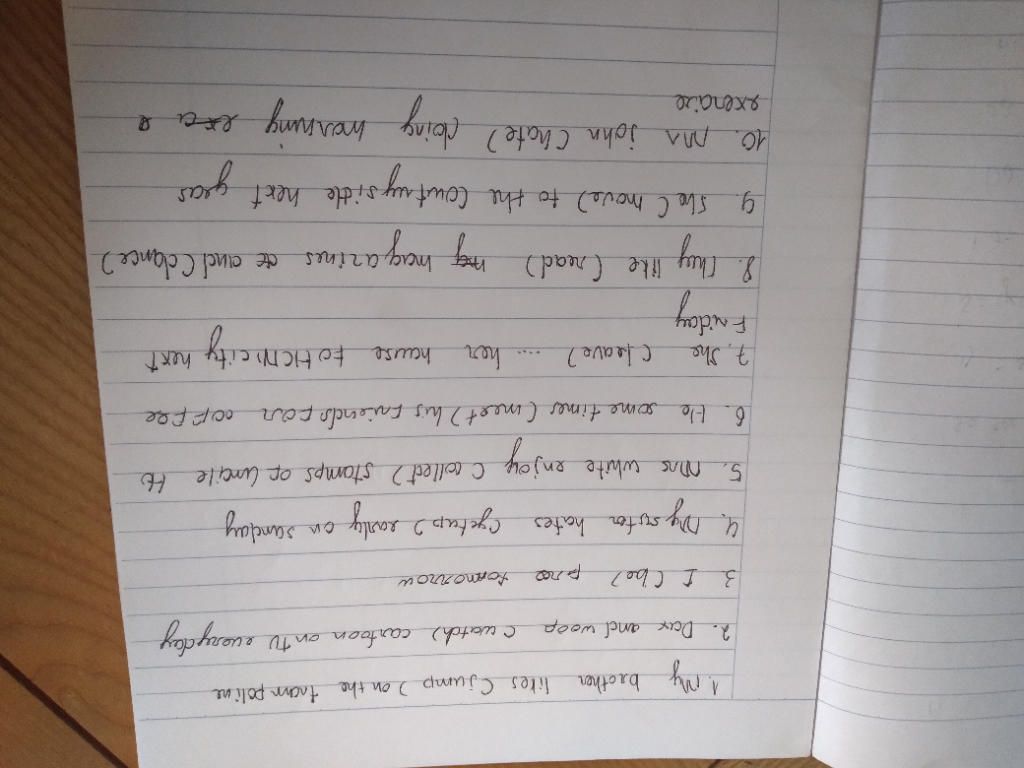 1. My brother likes (jump) on the trampoline
2. Dax and woop (watch) cartoon on TV everyday
3. I (be) tomorrow
4. My sister hates (getup) early on sunday
5. Mrs white enjoy (collect) stamps of
6. He sometimes (meet) his friends For coffee
7. She (leave) .... her house to HCM city next
Friday
8. They like (read) magazines and (dance)
9. She (move) to the countryside next year
10. Mr john (hate) (doing morning
exercise